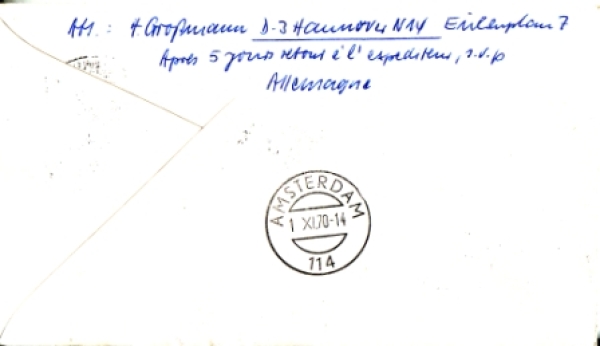 Abs. : A Großmann D-3 Hannover N14
Après 5 jours retour à l'expediteur, s.v.p
Allemagne
AMSTERDAM
1 XI.70-14
114